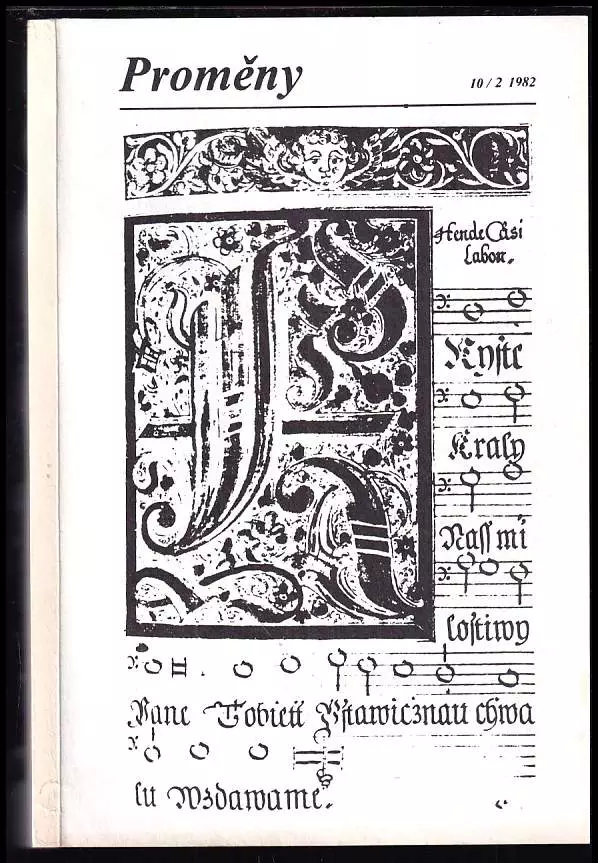 Proměny
10 / 2 1982
K
Ryſte
Kraly
Naſſ mi
loſtiwy
Pane Tobiett Vſtawicznau chwa
lu Wzdawame.